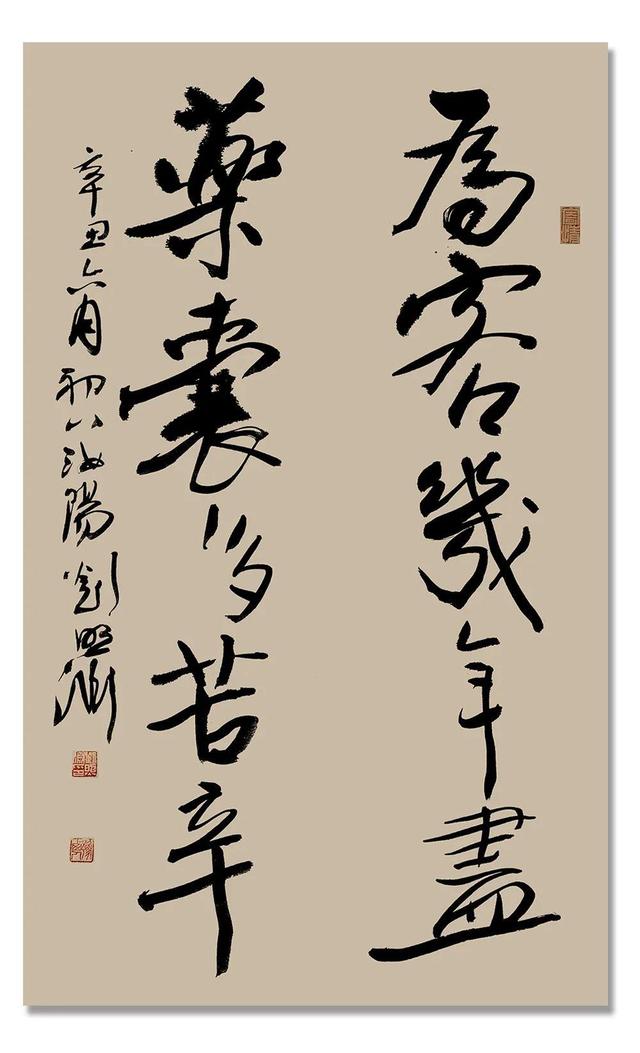 為客幾年盡
藥囊多苦辛
辛丑六月初八陽劉照